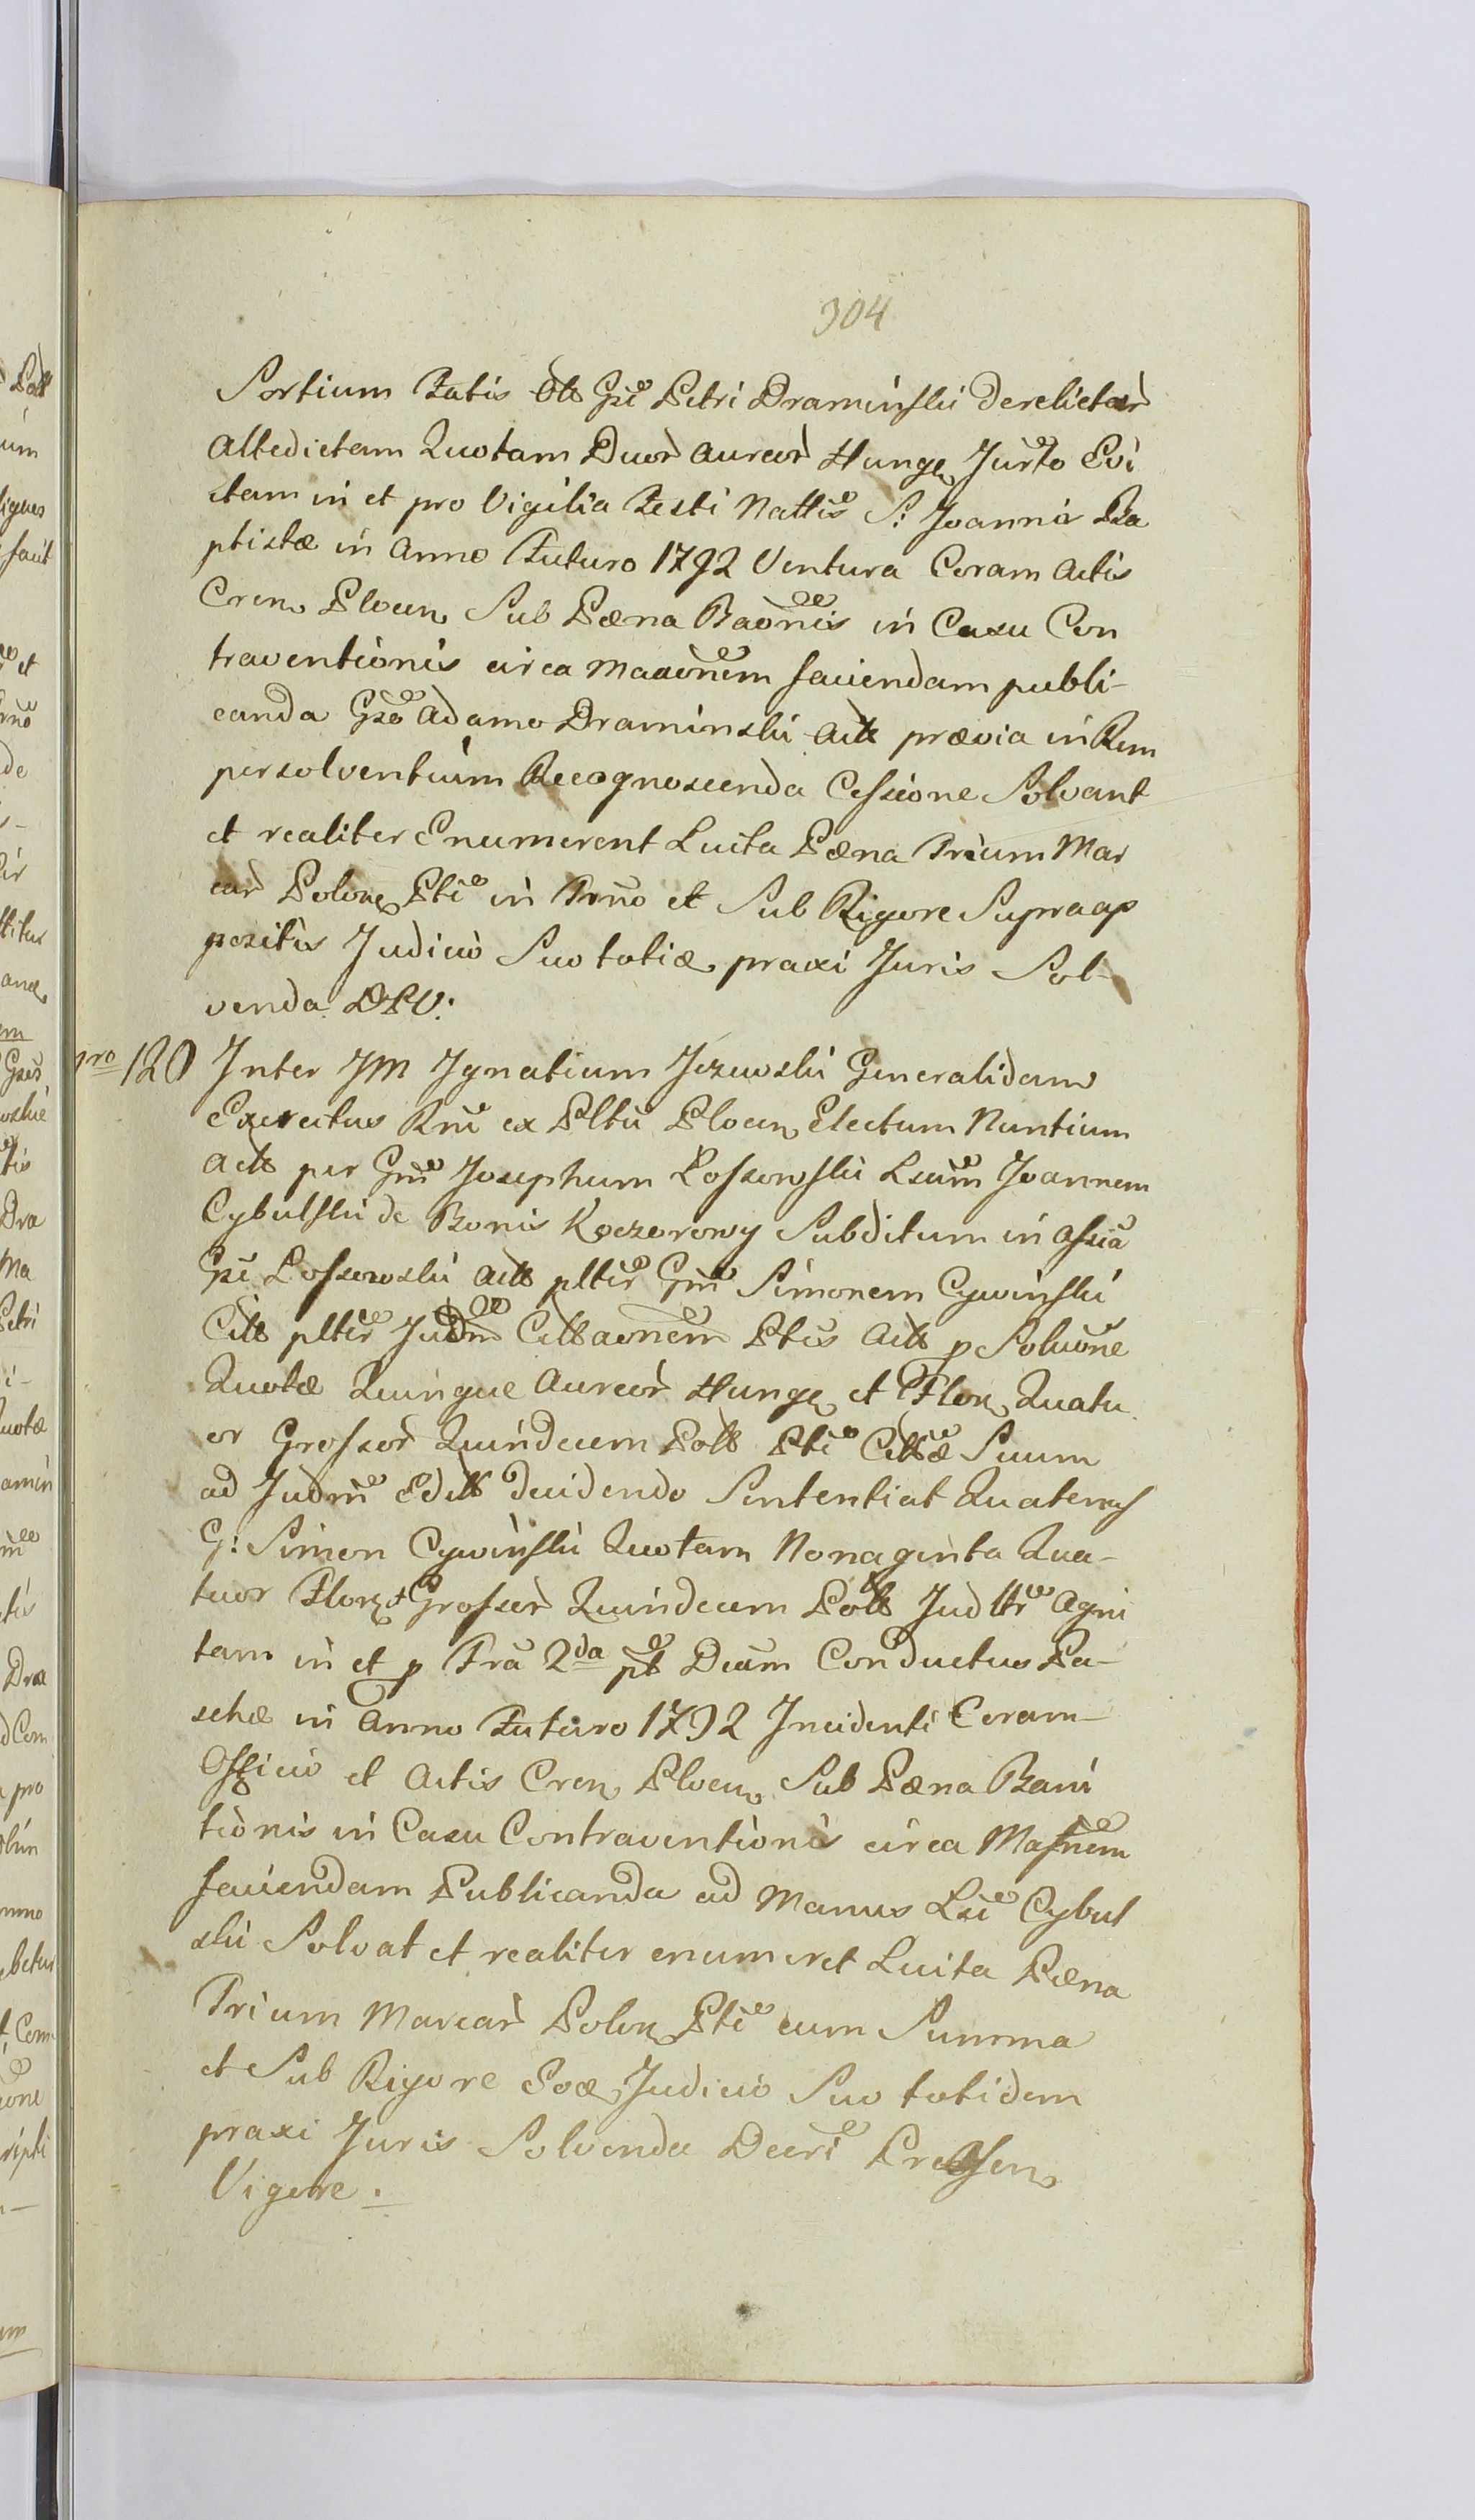 304
Sortium Fatis olt Gsi Petri Dramiński derelictar
Altedictam Quotam Duor Aureor Hung Jurto Evi
ctam in et pro Vigilia Festi Nattis S: Joannis Ba
ptistæ in Anno Futuro 1792 Ventura Coram Actis
Cren Plocen Sub Pæna Baonis in Casu Con
traventionis circa Maaonem faciendam publi-
canda Gso Adamo Dramiński Act prævia in Rem
persolventium Recognoscenda Cessione Solvant
et realiter Enumerent Luita Pæna Trium Mar
car Polon Pti in Trno et Sub Rigore Supra ap
positis Judicio Suo totiæ praxi Juris Sol-
venda DPV:
nro 120 Inter JM Ignatium Jezewski Generalidam
Exercitus Rni ex Pltu Plocen Electum Nuntium
Act per Gm Josephum Lossowski Lsum Joannem
Cybulski de Bonis Koczorowy Subditum in Assia
Gsi Lossowski Act pltir Gm Simonem Cywiński
Citt pltir Judm Cittaonem Ptis Act p Soluone
Quotæ Quinque Aureor Hung et Flon Quatu
or Grossor Quindecim Poll Pti Cittæ Suum
ad Judm Edit decidendo Sententiat Quatenus
G: Simon Cywiński Quotam Nonaginta Qua-
tuor Flon et Grossor Quindecim Poll Judltr Agni
tam in et p Fra 2da pt Deam Conductus Pa-
schæ in Anno Futuro 1792 Incidenti Coram
Officio et Actis Cren Plocen Sub Pæna Bani
tionis in Casu Contraventionis circa Masnem
faciendam Publicanda ad Manus Lsi Cybul
ski Solvat et realiter enumeret Luita Pæna
Trium Marcar Polon Pti cum Summa
et Sub Rigore Eoæ Judicio Suo totidem
praxi Juris Solvenda Decri Præsen
Vigore.